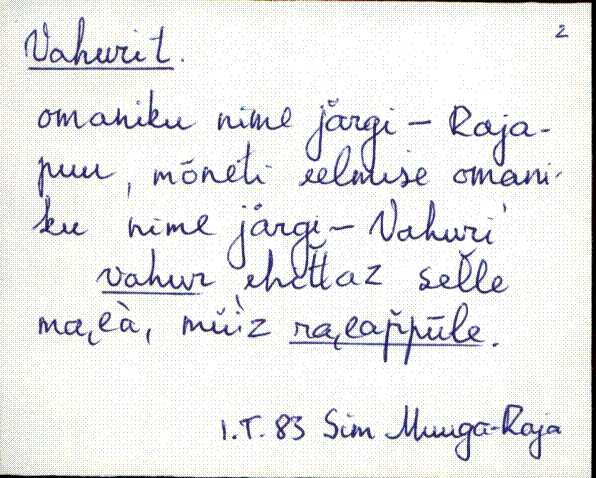 2
Vahurit.
omaniku nime järgi – Raja-
puu, mõneti eelmise omani-
ku nime järgi – Vahuri
vahur ehitta̬z selle
müiz
I.T. 83 Sim Muuga-Raja